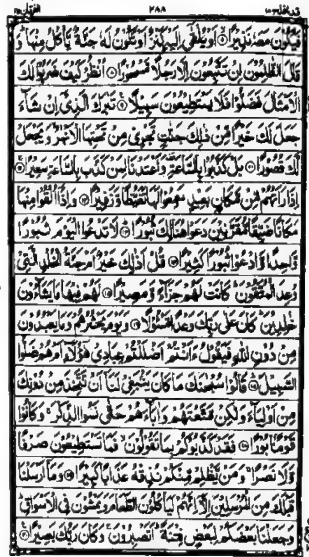 قد افلح ۱۸ ۲۸۸ الفرقان ۲۵
فَيَكُوْنَ مَعَهٗ نَذِيْرًا ۙ اَوْ يُلْقٰٓى اِلَيْهِ كَنْزٌ اَوْ تَكُوْنُ لَهٗ جَنَّةٌ يَّاْكُلُ مِنْهَا ؕ وَ
قَالَ الظّٰلِمُوْنَ اِنْ تَتَّبِعُوْنَ اِلَّا رَجُلًا مَّسْحُوْرًا اُنْظُرْ كَيْفَ ضَرَبُوْا لَكَ
الْاَمْثَالَ فَضَلُّوْا فَلَا يَسْتَطِيْعُوْنَ سَبِيْلًا تَبٰرَكَ الَّذِيْٓ اِنْ شَآءَ
جَعَلَ لَكَ خَيْرًا مِّنْ ذٰلِكَ جَنّٰتٍ تَجْرِيْ مِنْ تَحْتِهَا الْاَنْهٰرُ وَيَجْعَلْ
لَّكَ قُصُوْرًا بَلْ كَذَّبُوْا بِالسَّاعَةِ وَاَعْتَدْنَا لِمَنْ كَذَّبَ بِالسَّاعَةِ سَعِيْرًا
اِذَا رَاَتْهُمْ مِّنْ مَّكَانٍۭ بَعِيْدٍ سَمِعُوْا لَهَا تَغَيُّظًا وَّزَفِيْرًا وَاِذَآ اُلْقُوْا مِنْهَا
مَكَانًا ضَيِّقًا مُّقَرَّنِيْنَ دَعَوْا هُنَالِكَ ثُبُوْرًا لَا تَدْعُوا الْيَوْمَ ثُبُوْرًا
وَّاحِدًا وَّادْعُوْا ثُبُوْرًا كَثِيْرًا قُلْ اَذٰلِكَ خَيْرٌ اَمْ جَنَّةُ الْخُلْدِ الَّتِيْ
وُعِدَ الْمُتَّقُوْنَ كَانَتْ لَهُمْ جَزَآءً وَّمَصِيْرًا لَهُمْ فِيْهَا مَا يَشَآءُوْنَ
خٰلِدِيْنَ كَانَ عَلٰى رَبِّكَ وَعْدًا مَّسْـُٔوْلًا وَيَوْمَ يَحْشُرُهُمْ وَمَا يَعْبُدُوْنَ
مِنْ دُوْنِ اللّٰهِ فَيَقُوْلُ ءَاَنْتُمْ اَضْلَلْتُمْ عِبَادِيْ هٰٓؤُلَآءِ اَمْ هُمْ ضَلُّوا
السَّبِيْلَ قَالُوْا سُبْحٰنَكَ مَا كَانَ يَنْۢبَغِيْ لَنَآ اَنْ نَّتَّخِذَ مِنْ دُوْنِكَ
مِنْ اَوْلِيَآءَ وَلٰكِنْ مَّتَّعْتَهُمْ وَاٰبَآءَهُمْ حَتّٰى نَسُوا الذِّكْرَ وَكَانُوْا
قَوْمًۢا بُوْرًا فَقَدْ كَذَّبُوْكُمْ بِمَا تَقُوْلُوْنَ فَمَا تَسْتَطِيْعُوْنَ صَرْفًا
وَّلَا نَصْرًا وَمَنْ يَّظْلِمْ مِّنْكُمْ نُذِقْهُ عَذَابًا كَبِيْرًا وَمَآ اَرْسَلْنَا
قَبْلَكَ مِنَ الْمُرْسَلِيْنَ اِلَّآ اِنَّهُمْ لَيَاْكُلُوْنَ الطَّعَامَ وَيَمْشُوْنَ فِي الْاَسْوَاقِ
وَجَعَلْنَا بَعْضَكُمْ لِبَعْضٍ فِتْنَةً اَتَصْبِرُوْنَ وَكَانَ رَبُّكَ بَصِيْرًا